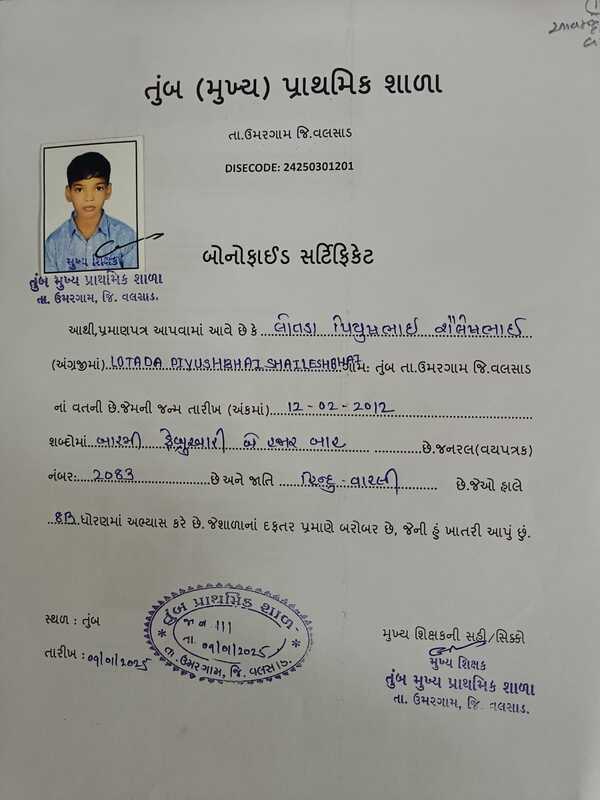 તુંબ (મુખ્ય) પ્રાથમિક શાળા
તા.ઉમરગામ જિ.વલસાડ
DISECODE: 24250301201
મુખ્ય શિક્ષક
તુંબ મુખ્ય પ્રાથમિક શાળા
તા. ઉમરગામ, જિ. વલસાડ.
બોનોફાઈડ સર્ટિફિકેટ
આથી,પ્રમાણપત્ર આપવામાં આવે છે કે લોતડા પિયુષભાઈ શૈલેષભાઈ
(અંગ્રેજીમાં) LOTADA PIYUSHBHAI SHAILESHBHAI ગામ: તુંબ તા.ઉમરગામ જિ.વલસાડ
નાં વતની છે.જેમની જન્મ તારીખ (અંકમાં) 12-02-2012
શબ્દોમાં બારમી ફેબ્રુઆરી બે હજાર બાર છે.જનરલ(વયપત્રક)
નંબર: 2083 છે અને જાતિ હિન્દુ-વારલી છે.જેઓ હાલે
8B ધોરણમાં અભ્યાસ કરે છે. જેશાળાનાં દફતર પ્રમાણે બરોબર છે, જેની હું ખાતરી આપું છું.
સ્થળ : તુંબ
તારીખ : ૦૧/૦૧/2025
તુંબ પ્રાથમિક શાળા
જા ન 111
તા. ૦૧/૦૧/2025
તા. ઉમરગામ, જિ. વલસાડ.
મુખ્ય શિક્ષકની સહી/સિક્કો
મુખ્ય શિક્ષક
તુંબ મુખ્ય પ્રાથમિક શાળા
તા. ઉમરગામ, જિ. વલસાડ.